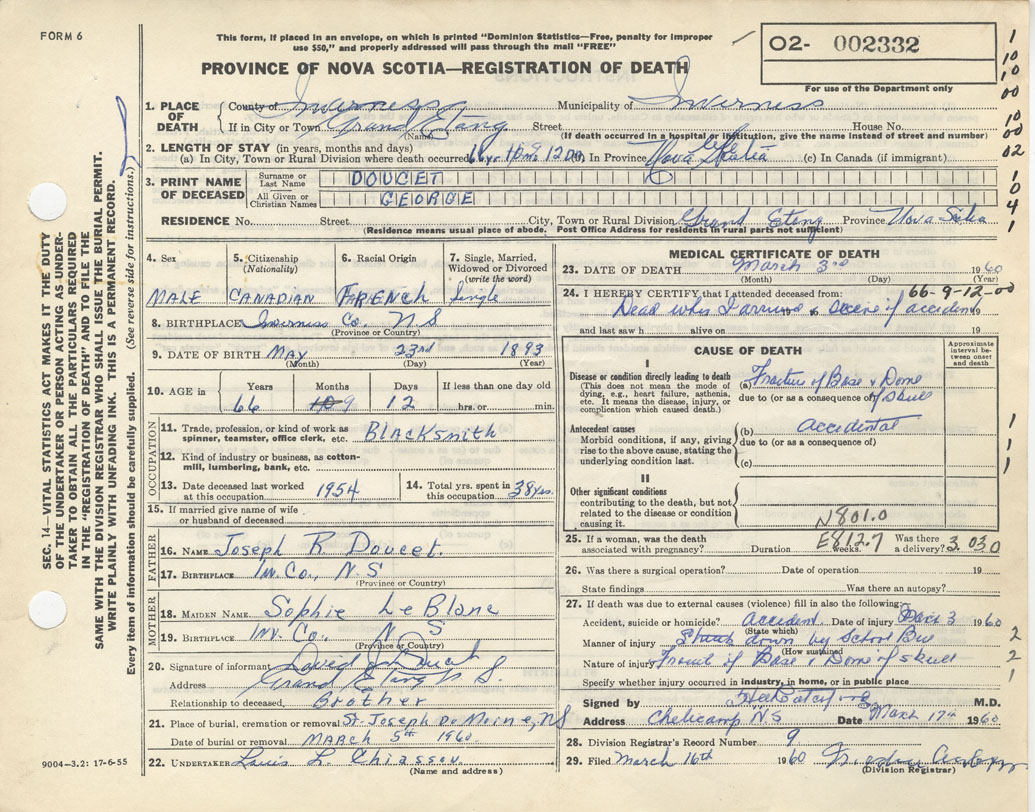 FORM 6
This form, if placed in an envelope, on which is printed "Dominion Statistics—Free, penalty for improper
use $50," and properly addressed will pass through the mail "FREE"
O2- 002332
For use of the Department only
PROVINCE OF NOVA SCOTIA—REGISTRATION OF DEATH
1
10
10
00
10
00
02
1
0
4
1
SEC. 14—VITAL STATISTICS ACT MAKES IT THE DUTY
OF THE UNDERTAKER OR PERSON ACTING AS UNDER-
TAKER TO OBTAIN ALL THE PARTICULARS REQUIRED
IN THE "REGISTRATION OF DEATH" AND TO FILE THE
SAME WITH THE DIVISION REGISTRAR WHO SHALL ISSUE THE BURIAL PERMIT.
WRITE PLAINLY WITH UNFADING INK. THIS IS A PERMANENT RECORD.
Every item of information should be carefully supplied. (See reverse side for instructions.)
1. PLACE OF DEATH
County of Inverness Municipality of Inverness
If in City or Town Grand Etang Street House No.
(Name) (If death occurred in a hospital or institution, give the name instead of street and number)
2. LENGTH OF STAY (in years, months and days)
(a) In City, Town or Rural Division where death occurred 66 yr 10 m 12 D. (b) In Province life Nova Scotia (c) In Canada (if immigrant)
3. PRINT NAME OF DECEASED
Surname or Last Name DOUCET
All Given or Christian Names GEORGE
RESIDENCE No. Street City, Town or Rural Division Grand Etang Province Nova Scotia
(Residence means usual place of abode. Post Office Address for residents in rural parts not sufficient)
4. Sex
MALE
5. Citizenship (Nationality)
CANADIAN
6. Racial Origin
FRENCH
7. Single, Married, Widowed or Divorced (write the word)
Single
8. BIRTHPLACE Inverness Co. N.S
(Province or Country)
9. DATE OF BIRTH MAY 23rd 1893
(Month) (Day) (Year)
10. AGE in Years Months Days If less than one day old
66 9 12 hrs. or min.
OCCUPATION
11. Trade, profession, or kind of work as spinner, teamster, office clerk, etc. BLACKSMITH
12. Kind of industry or business, as cotton-mill, lumbering, bank, etc.
13. Date deceased last worked at this occupation 1954
14. Total yrs. spent in this occupation 38 yrs.
15. If married give name of wife or husband of deceased
FATHER
16. NAME Joseph R. Doucet.
17. BIRTHPLACE Inv. Co., N. S
(Province or Country)
MOTHER
18. MAIDEN NAME Sophie Le Blanc
19. BIRTHPLACE Inv. Co., N S
(Province or Country)
20. Signature of informant David J. Doucet
Address Grand Etang N S.
Relationship to deceased Brother
21. Place of burial, cremation or removal St. Joseph Du Moine, NS
Date of burial or removal MARCH 5th 1960
22. UNDERTAKER Louis L. Chiasson
(Name and address)
9004-3.2: 17-6-55
MEDICAL CERTIFICATE OF DEATH
23. DATE OF DEATH March 3rd 1960
(Month) (Day) (Year)
24. I HEREBY CERTIFY that I attended deceased from: 66-9-12-00
Dead when I arrived to scene of accident 19
and last saw h alive on 19
CAUSE OF DEATH
Approximate interval between onset and death
I
Disease or condition directly leading to death
(This does not mean the mode of dying, e.g., heart failure, asthenia, etc. It means the disease, injury, or complication which caused death.)
(a) Fracture of Base & Dome of skull
due to (or as a consequence of)
Antecedent causes
Morbid conditions, if any, giving rise to the above cause, stating the underlying condition last.
(b) accidental
due to (or as a consequence of)
(c)
1
1
1
II
Other significant conditions
contributing to the death, but not related to the disease or condition causing it.
N801.0
E812.7
25. If a woman, was the death associated with pregnancy? Duration weeks. Was there a delivery? 3.030
26. Was there a surgical operation? Date of operation 19
State findings Was there an autopsy?
27. If death was due to external causes (violence) fill in also the following:
Accident, suicide or homicide? accident. Date of injury March 3 1960
(State which)
Manner of injury Struck down by School Bus 2
(How sustained)
Nature of injury Fracture of Base & Dome of skull 2
Specify whether injury occurred in industry, in home, or in public place 1
Signed by M.D.
Address Cheticamp NS Date March 17th 1960
28. Division Registrar's Record Number 9
29. Filed March 16th 1960
(Division Registrar)